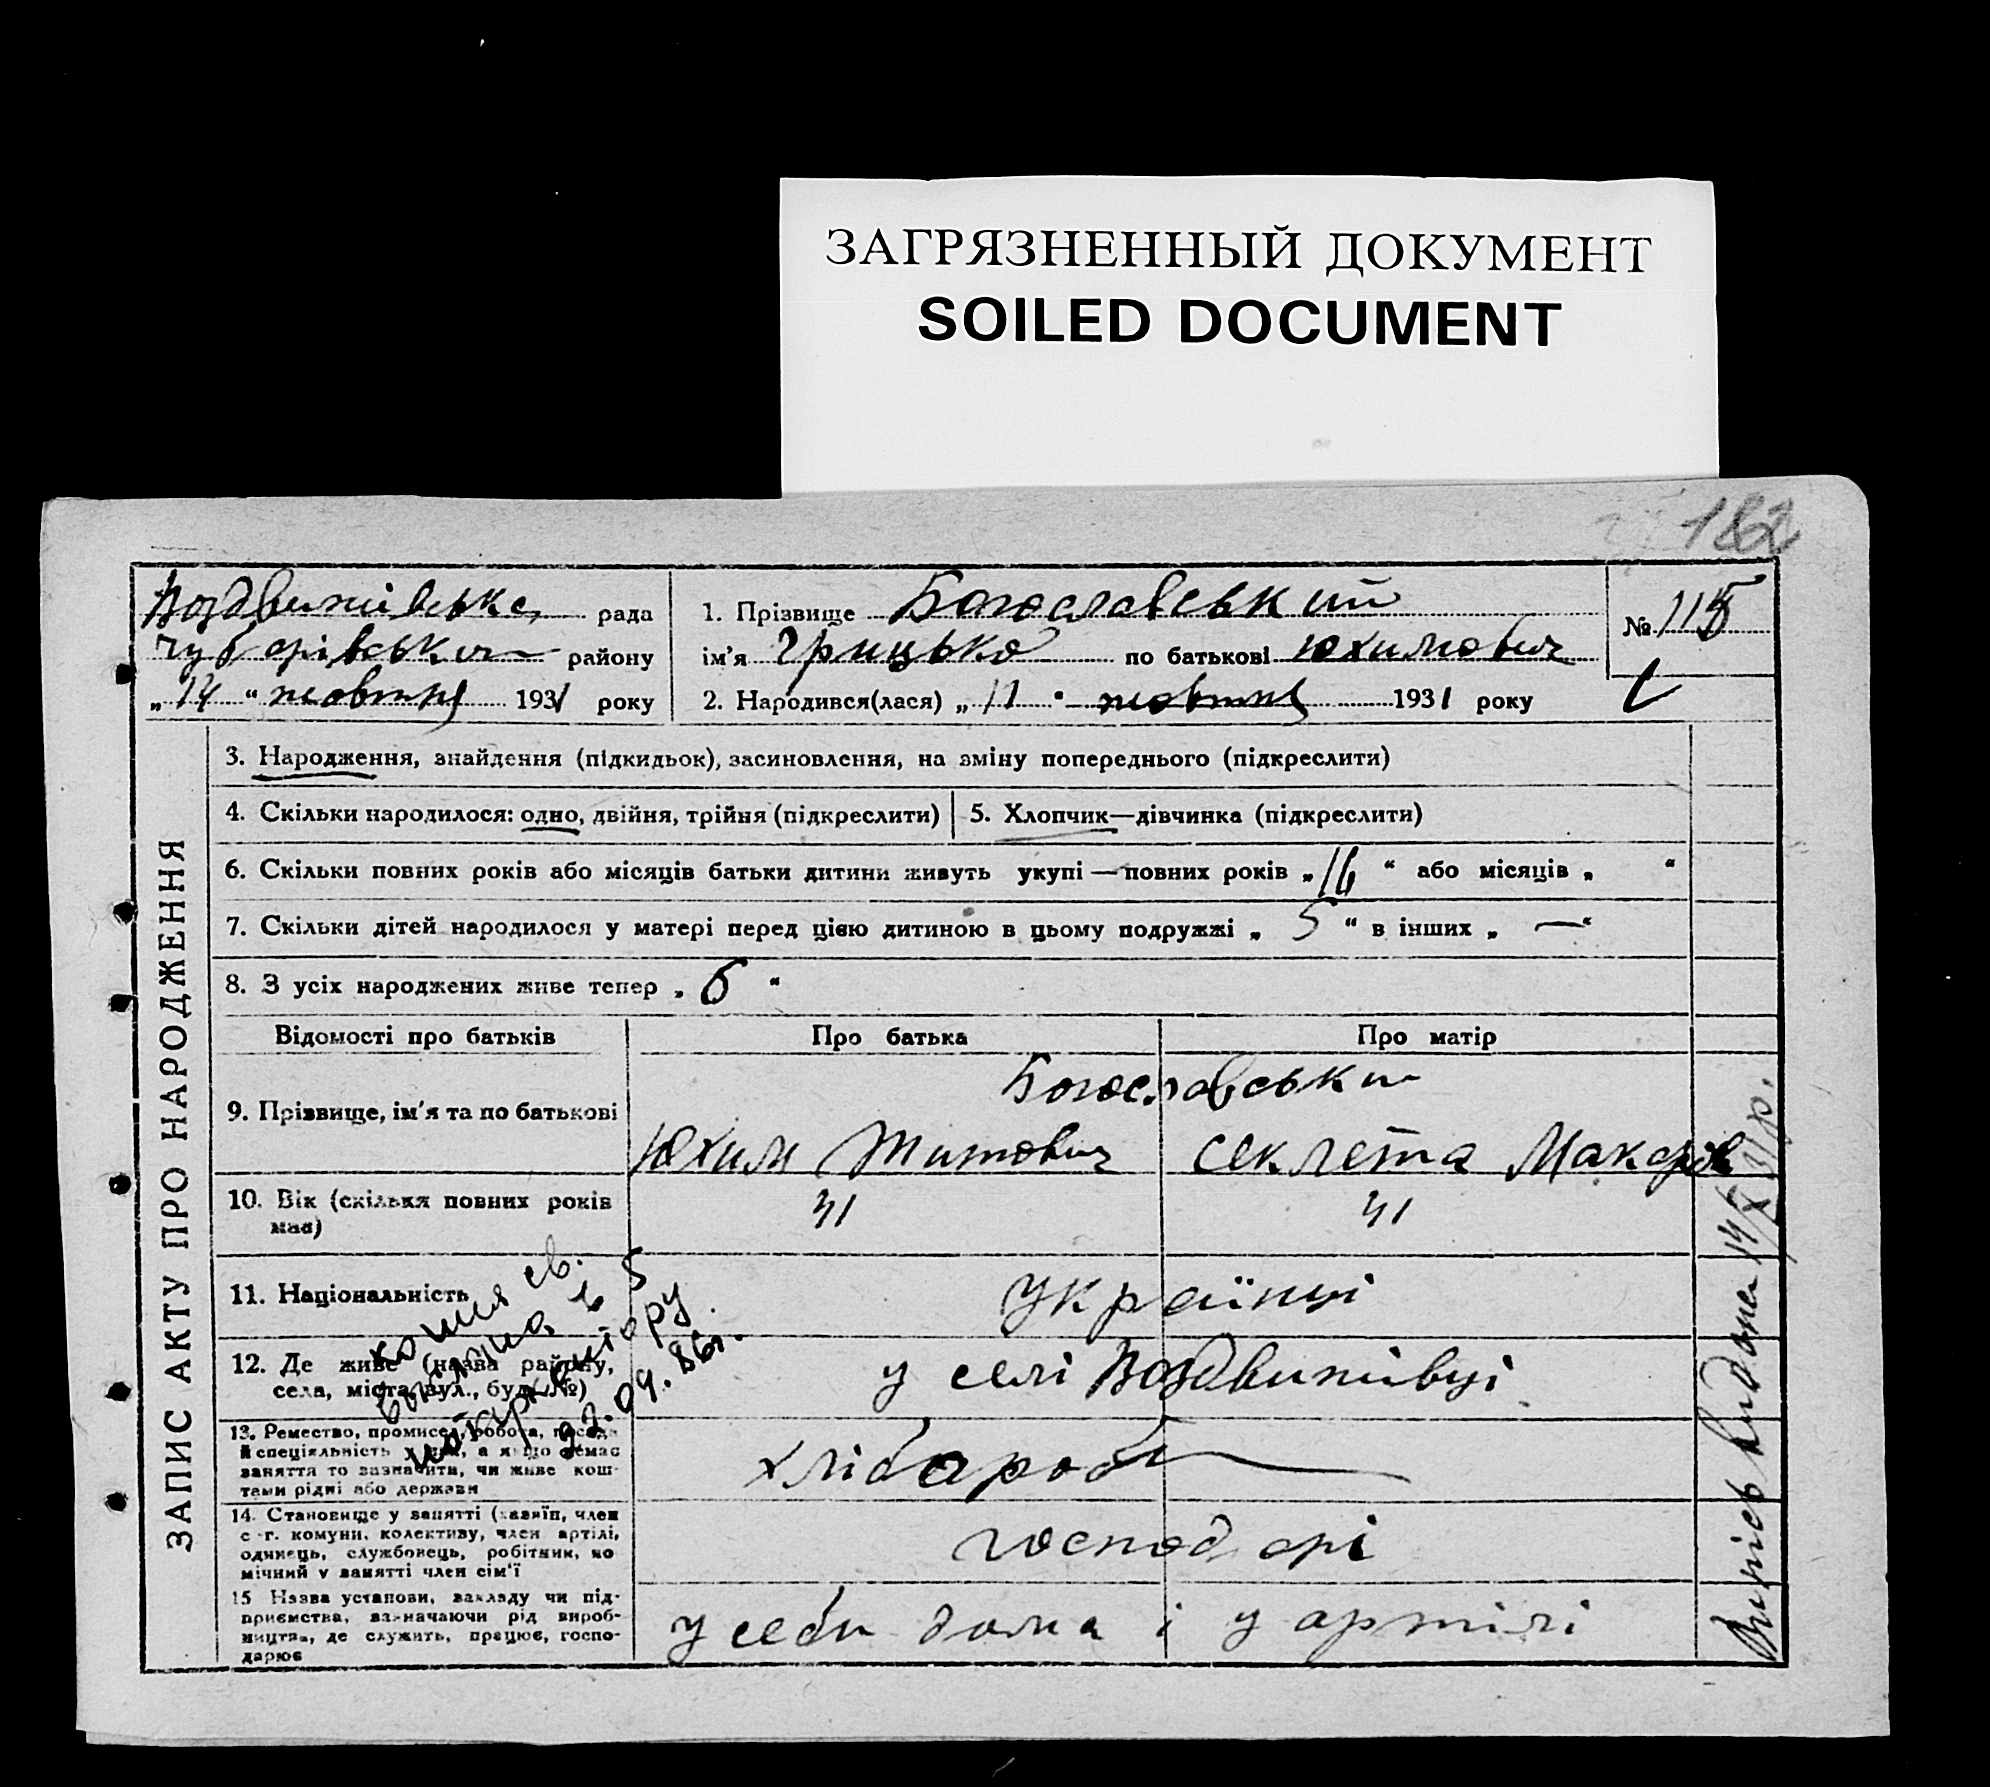 ЗАГРЯЗНЕННЫЙ ДОКУМЕНТ
SOILED DOCUMENT
182
Воздвижівська рада
Чубарівського району
„ 14 “ жовтня 1931 року
1. Прізвище Богославський
ім’я Грицько по батькові Юхимович
2. Народився(лася) „ 11 “ жовтня 1931 року
№ 115
ЗАПИС АКТУ ПРО НАРОДЖЕННЯ
3. Народження, знайдення (підкидьок), засиновлення, на зміну попереднього (підкреслити)
4. Скільки народилося: одно, двійня, трійня (підкреслити)
5. Хлопчик—дівчинка (підкреслити)
6. Скільки повних років або місяців батьки дитини живуть укупі — повних років „ 16 “ або місяців „ “
7. Скільки дітей народилося у матері перед цією дитиною в цьому подружжі „ 5 “ в інших „ — “
8. З усіх народжених живе тепер „ 6 “
Відомості про батьків
Про батька
Про матір
9. Прізвище, ім’я та по батькові
Богославськи
Юхим Титович
Секлета Макарів
10. Вік (скількя повних років
має)
41
41
11. Національність
Українці
12. Де живе (назва району,
села, міста, вул., буд. №)
у селі Воздвижівці
13. Ремество, промисел, робота, посада
й спеціяльність у них, а якщо немає
заняття то зазначити, чи живе кош-
тами рідні або держави
хлібороби
14. Становище у занятті (хазяїн, член
с.-г. комуни, колективу, член артілі,
одинець, службовець, робітник, по
мічний у занятті член сім’ї
господарі
15 Назва установи, закладу чи під-
приємства, зазначаючи рід вироб-
ництва, де служить, працює, госпо-
дарює
у себе дома і у артілі
копия св.
выслана в 5
нотар контору
22.09.86г.
Випись видана 14/X 31 р.